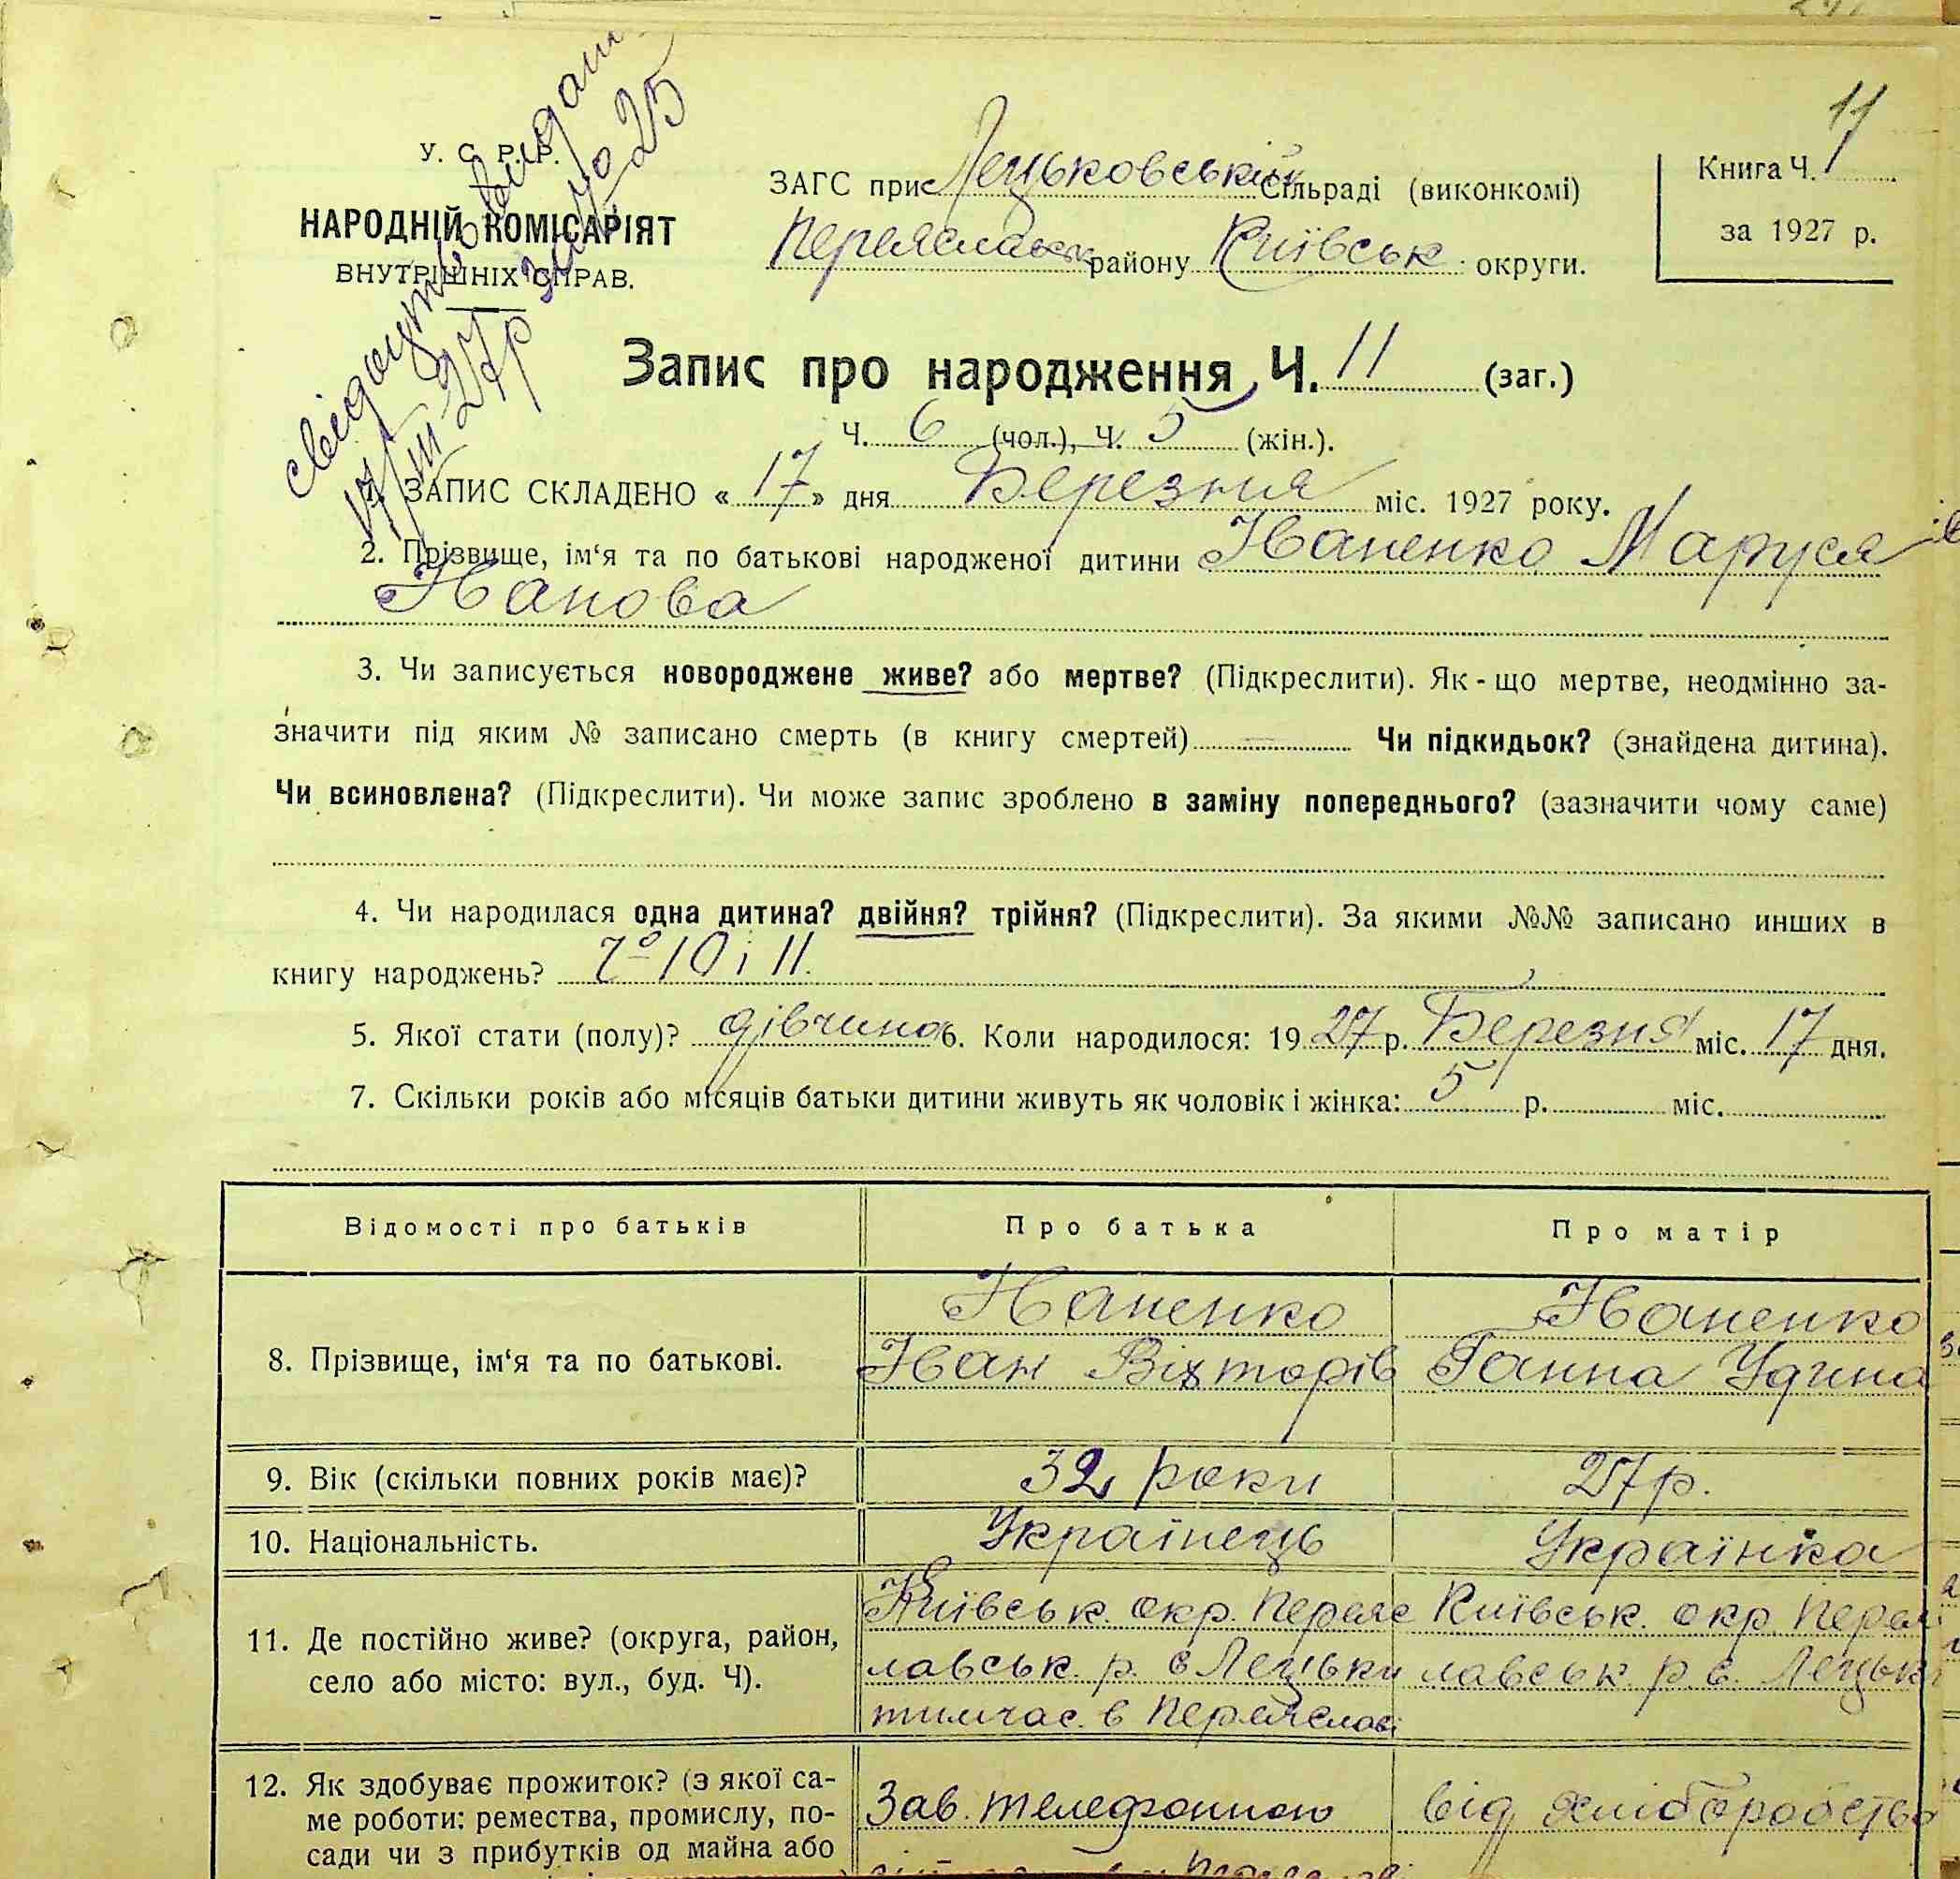 11
У. С. Р. Р.
НАРОДНІЙ КОМІСАРІЯТ
ВНУТРІШНІХ СПРАВ.
Свідоцтво видано
17/III 27р за № 25
ЗАГС при Лецьковській Сільраді (виконкомі)
Переяславськ району Київськ округи.
Книга Ч. 1
за 1927 р.
Запис про народження Ч. 11 (заг.)
Ч. 6 (чол.), Ч. 5 (жін.).
ЗАПИС СКЛАДЕНО «17» дня Березня міс. 1927 року.
2. Прізвище, ім‘я та по батькові народженої дитини Іваненко Маруся
Іванова
3. Чи записується новороджене живе? або мертве? (Підкреслити). Як-що мертве, неодмінно за-
значити під яким № записано смерть (в книгу смертей) — Чи підкидьок? (знайдена дитина).
Чи всиновлена? (Підкреслити). Чи може запис зроблено в заміну попереднього? (зазначити чому саме)
4. Чи народилася одна дитина? двійня? трійня? (Підкреслити). За якими №№ записано инших в
книгу народжень? 10 і 11.
5. Якої стати (полу)? дівчина 6. Коли народилося: 1927 р. Березня міс. 17 дня.
7. Скільки років або місяців батьки дитини живуть як чоловік і жінка: 5 р. міс.
Відомості про батьків Про батька Про матір
8. Прізвище, ім‘я та по батькові.
Іваненко
Іван Вікторів
Іваненко
Ганна
9. Вік (скільки повних років має)? 32 роки 27 р.
10. Національність. Українець Українка
11. Де постійно живе? (округа, район,
село або місто: вул., буд. Ч).
Київськ. окр. Переяс
лавськ. р. с Лецьки
тимчас. в Переяславі
Київськ. окр. Переяс
лавськ р. с. Лецьки
12. Як здобуває прожиток? (з якої са-
ме роботи: ремества, промислу, по-
сади чи з прибутків од майна або
Зав. телефонною
від хліборобства